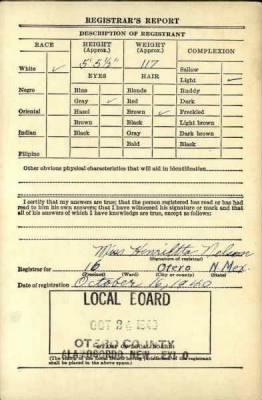 REGISTRAR'S REPORT
DESCRIPTION OF REGISTRANT
RACE HEIGHT (Approx.) WEIGHT (Approx.) COMPLEXION
White ✓ 5' 5½" 117 Sallow
EYES HAIR Light
Negro Blue Blonde Ruddy
Gray ✓ Red Dark
Oriental Hazel Brown ✓ Freckled
Brown Black Light brown
Indian Black Gray Dark brown
Bald Black
Filipino
Other obvious physical characteristics that will aid in identification
I certify that my answers are true; that the person registered has read or has had
read to him his own answers; that I have witnessed his signature or mark and that
all of his answers of which I have knowledge are true, except as follows:
Miss Henrietta Nelson
(Signature of registrar)
Registrar for 16 Otero N. Mex.
(Precinct) (Ward) (City or county) (State)
Date of registration October 16, 1940
LOCAL BOARD
OCT 24 1940
OTERO COUNTY
ALAMOGORDO, NEW MEXICO
(The stamp of the Local Board having jurisdiction of the registrant
shall be placed in the above space.)